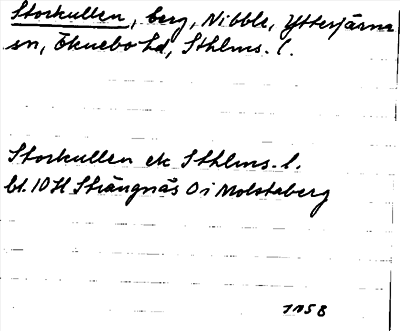 Storkullen, berg, Nibble, Ytterjärna
sn, Öknebo hd, Sthlms. l.
Storkullen ek Sthlms. l.
bl. 10 H Strängnäs O i Molstaberg